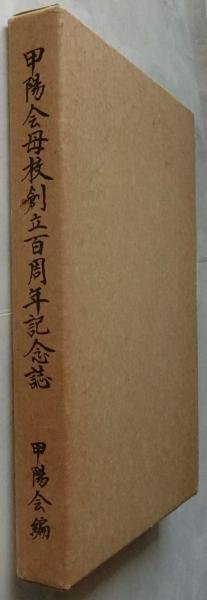 甲陽会母校創立百周年記念誌
甲陽会編